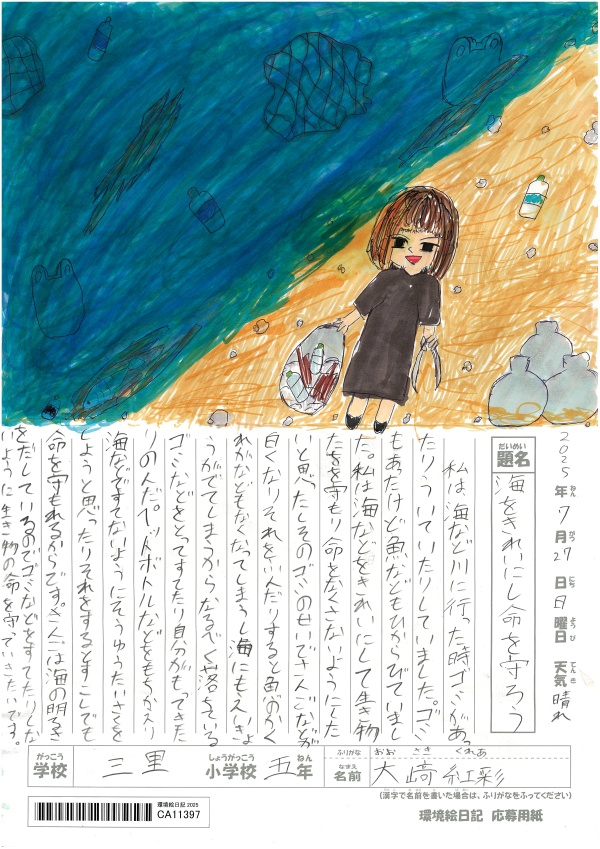 2025年7月27日日曜日 天気晴れ
ねん がつ にち ようび てんき
だいめい
題名 海をきれいにし命を守ろう
私は海など川に行った時ゴミがあっ
たりういていたりしていました。ゴミ
もあたけど魚などもひからびていまし
た。私は海などをきれいにして生き物
たちを守もり命をなくさないようにした
いと思ったしそのゴミのせいでさんごなどが
白くなりそれをいんだりすると魚のかく
れがなどもなくなってしまうし海にもえいきょ
うがでてしまうからなるべく落ちている
ゴミなどをとってすてたり自分がもってきた
りのんだペットボトルなどをもちかえり
海などですてないようにそうゆうたいさくを
しようと思ったりそれをするとすこしでも
命を守もれるからです。さんごは海の明るさ
をだしているのでゴミなどをすてたりしな
いように生き物の命を守っていきたいです。
がっこう しょうがっこう ねん ふりがな おお さき くれあ
学校 三里 小学校 五年 なまえ 名前 大﨑 紅彩
(漢字で名前を書いた場合は、ふりがなをふってください)
環境絵日記 2025
CA11397
環境絵日記 応募用紙